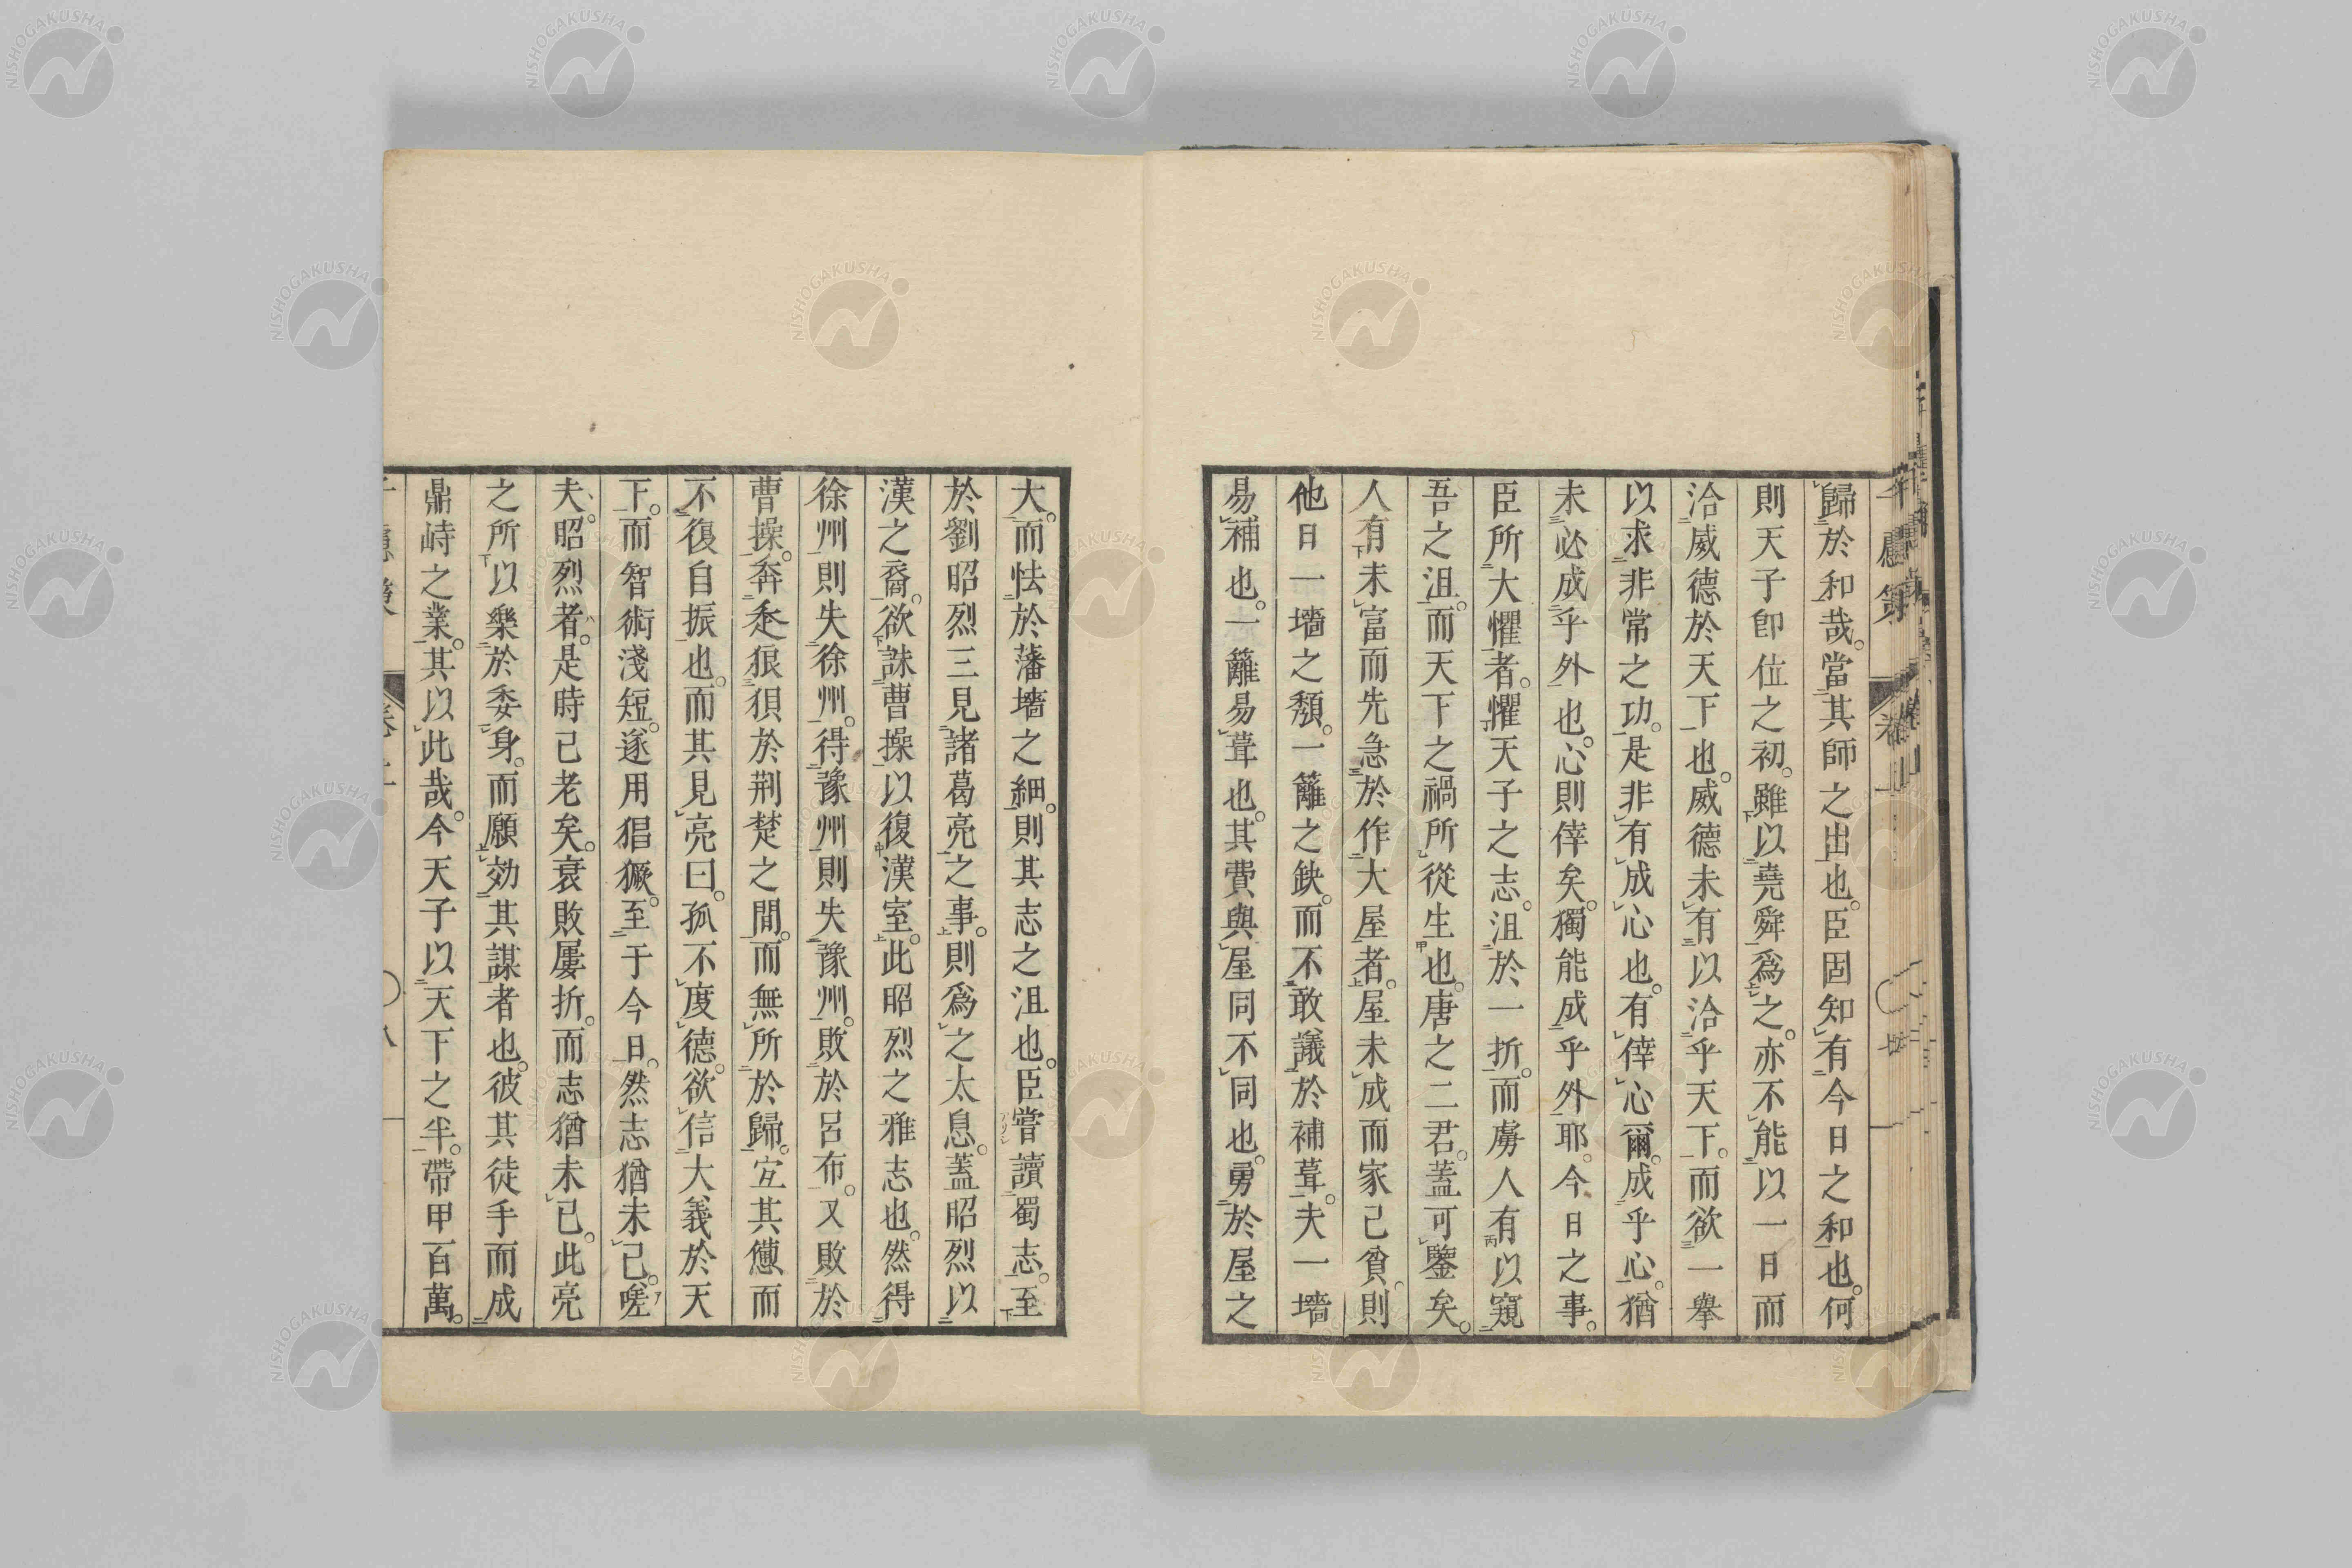 歸於和哉。當其師之出也。臣固知有今日之和也。何
則天子卽位之初。雖以堯舜爲之。亦不能以一日而
洽威德於天下也。威德未有以洽乎天下。而欲一擧
以求非常之功。是非有成心也。有倖心爾。成乎心。猶
未必成乎外也。心則倖矣。獨能成乎外耶。今日之事。
臣所大懼者。懼天子之志。沮於一折。而虜人有以窺
吾之沮。而天下之禍所從生也。唐之二君。蓋可鑒矣。
人有未富而先急於作大屋者。屋未成而家已貧。則
他日一墻之頽。一籬之缺。而不敢議於補葺。夫一墻
易補也。一籬易葺也。其費與屋同不同也。勇於屋之
大。而怯於藩墻之細。則其志之沮也。臣嘗讀蜀志。至
於劉昭烈三見諸葛亮之事。則爲之太息。蓋昭烈以
漢之裔。欲誅曹操以復漢室。此昭烈之雅志也。然得
徐州則失徐州。得豫州則失豫州。敗於呂布。又敗於
曹操。奔走狼狽於荆楚之間。而無所於歸。宜其憊而
不復自振也。而其見亮曰。孤不度德。欲信大義於天
下。而智術淺短。遂用猖獗。至于今日。然志猶未已。嗟
夫。昭烈者。是時已老矣。衰敗屢折。而志猶未已。此亮
之所以樂於委身。而願効其謀者也。彼其徒手而成
鼎峙之業。其以此哉。今天子以天下之半。帶甲百萬。